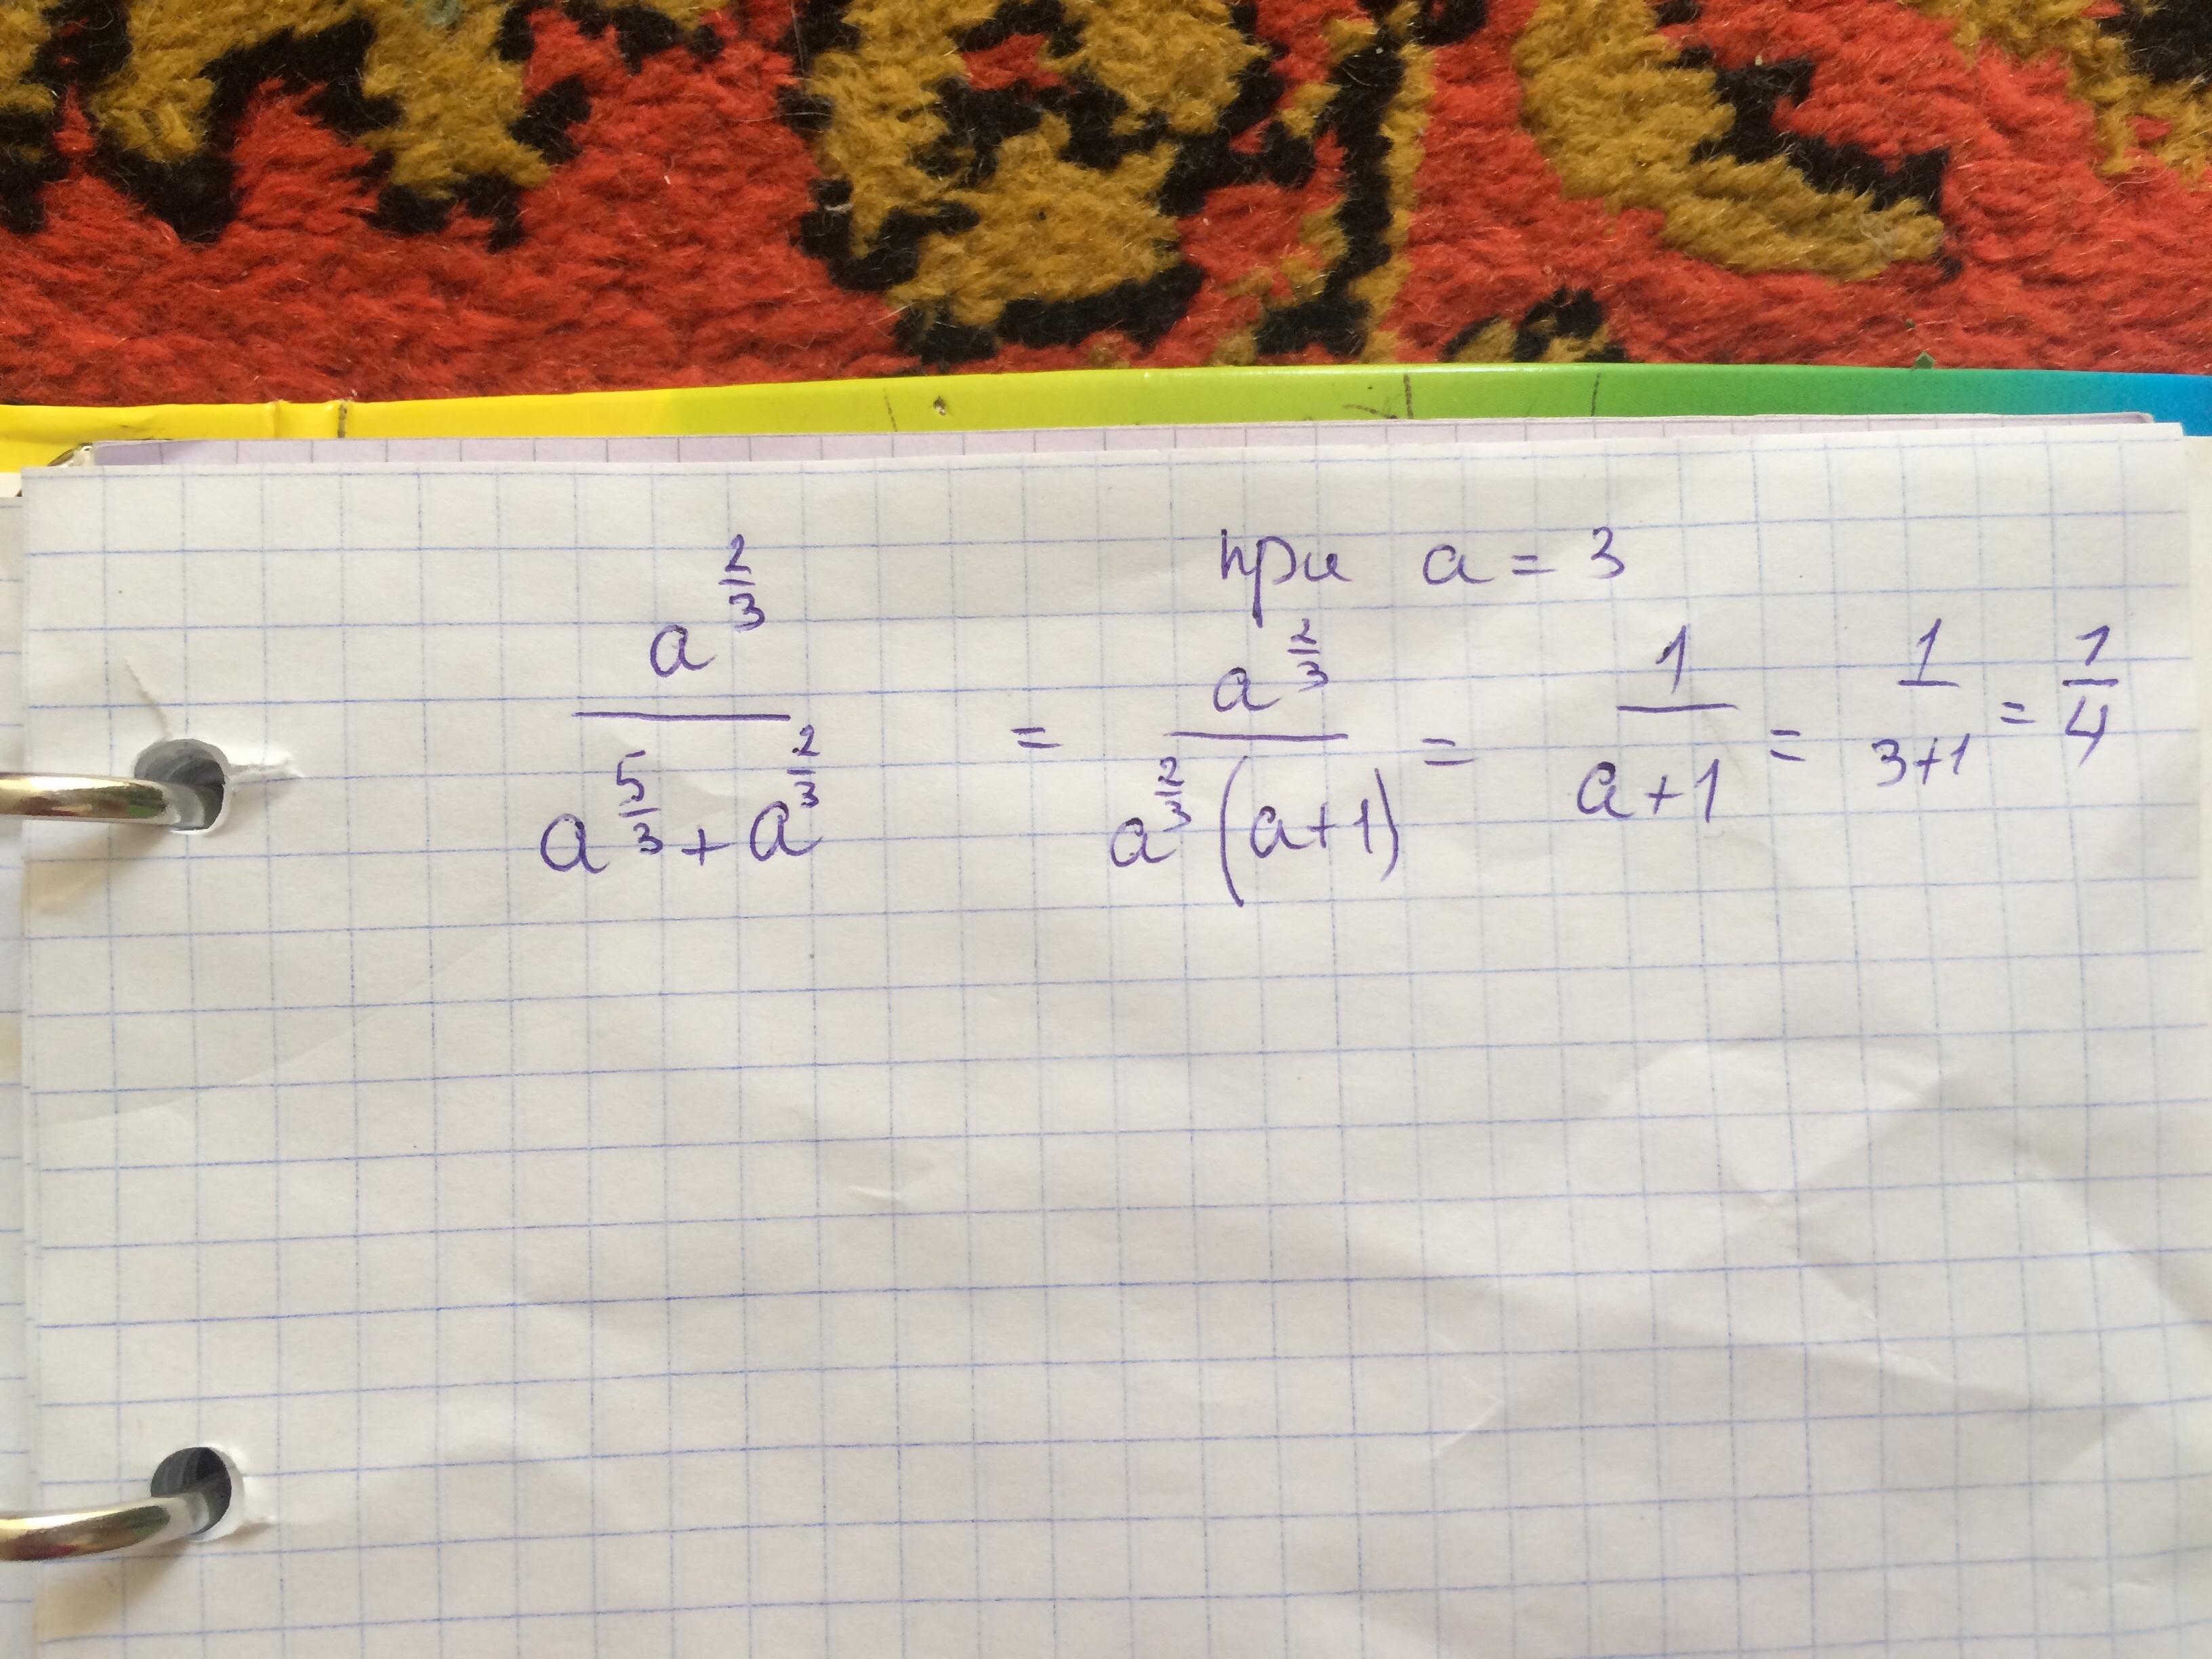 при a = 3
a^{\frac{2}{3}} / (a^{\frac{5}{3}} + a^{\frac{2}{3}}) = a^{\frac{2}{3}} / (a^{\frac{2}{3}} (a+1)) = 1 / (a+1) = 1 / (3+1) = 1 / 4